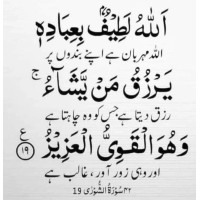 اَللّٰهُ لَطِيْفٌۢ بِعِبَادِهٖ
اللہ مہربان ہے اپنے بندوں پر
يَرْزُقُ مَنْ يَّشَآءُ ۚ
رزق دیتا ہے جس کو وہ چاہتا ہے
وَهُوَ الْقَوِيُّ الْعَزِيْزُ
ع ۱۹
اور وہی زور آور، غالب ہے
۴۲ سُوْرَةُ الشُّوْرٰى 19